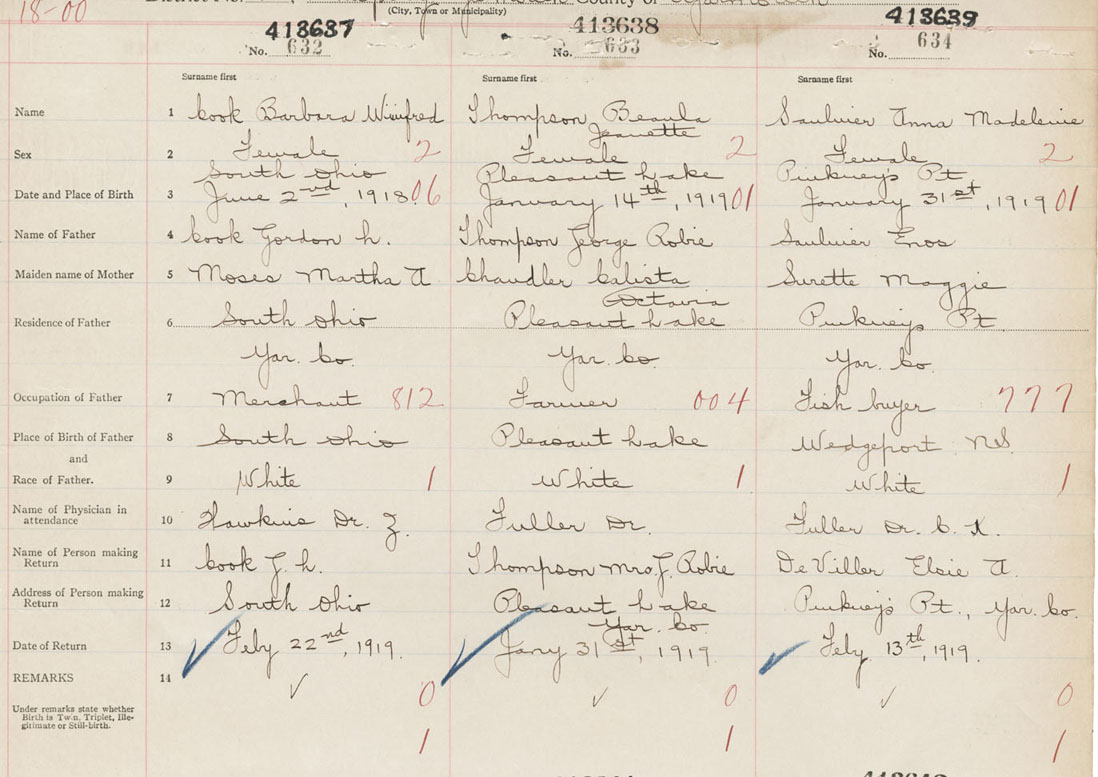 18-00
District No. County of
(City, Town or Municipality)
413637 413638 413639
No. 632 No. 633 No. 634
Surname first Surname first Surname first
Name 1 Cook Barbara Winifred Thompson Beaula Jeanette Saulnier Anna Madeleine
Sex 2 Female 2 Female 2 Female 2
South Ohio Pleasant Lake Pinkney's Pt
Date and Place of Birth 3 June 2nd, 1918 06 January 14th, 1919 01 January 31st, 1919 01
Name of Father 4 Cook Gordon L. Thompson George Robie Saulnier Enos
Maiden name of Mother 5 Moses Martha A Chandler Calista Octavia Surette Maggie
Residence of Father 6 South Ohio Pleasant Lake Pinkney's Pt
Yar. Co. Yar. Co. Yar. Co.
Occupation of Father 7 Merchant 812 Farmer 004 Fish buyer 777
Place of Birth of Father 8 South Ohio Pleasant Lake Wedgeport N.S.
and
Race of Father. 9 White 1 White 1 White 1
Name of Physician in
attendance 10 Hawkins Dr. Z. Fuller Dr. Fuller Dr. C.
Name of Person making
Return 11 Cook G. L. Thompson Mrs. G. Robie DeViller Elsie A.
Address of Person making
Return 12 South Ohio Pleasant Lake Pinkney's Pt., Yar. Co.
Yar. Co.
Date of Return 13 Feby 22nd, 1919. Jany 31st, 1919. Feby 13th, 1919.
REMARKS 14
0 0 0
Under remarks state whether
Birth is Twin, Triplet, Ille-
gitimate or Still-birth.
1 1 1